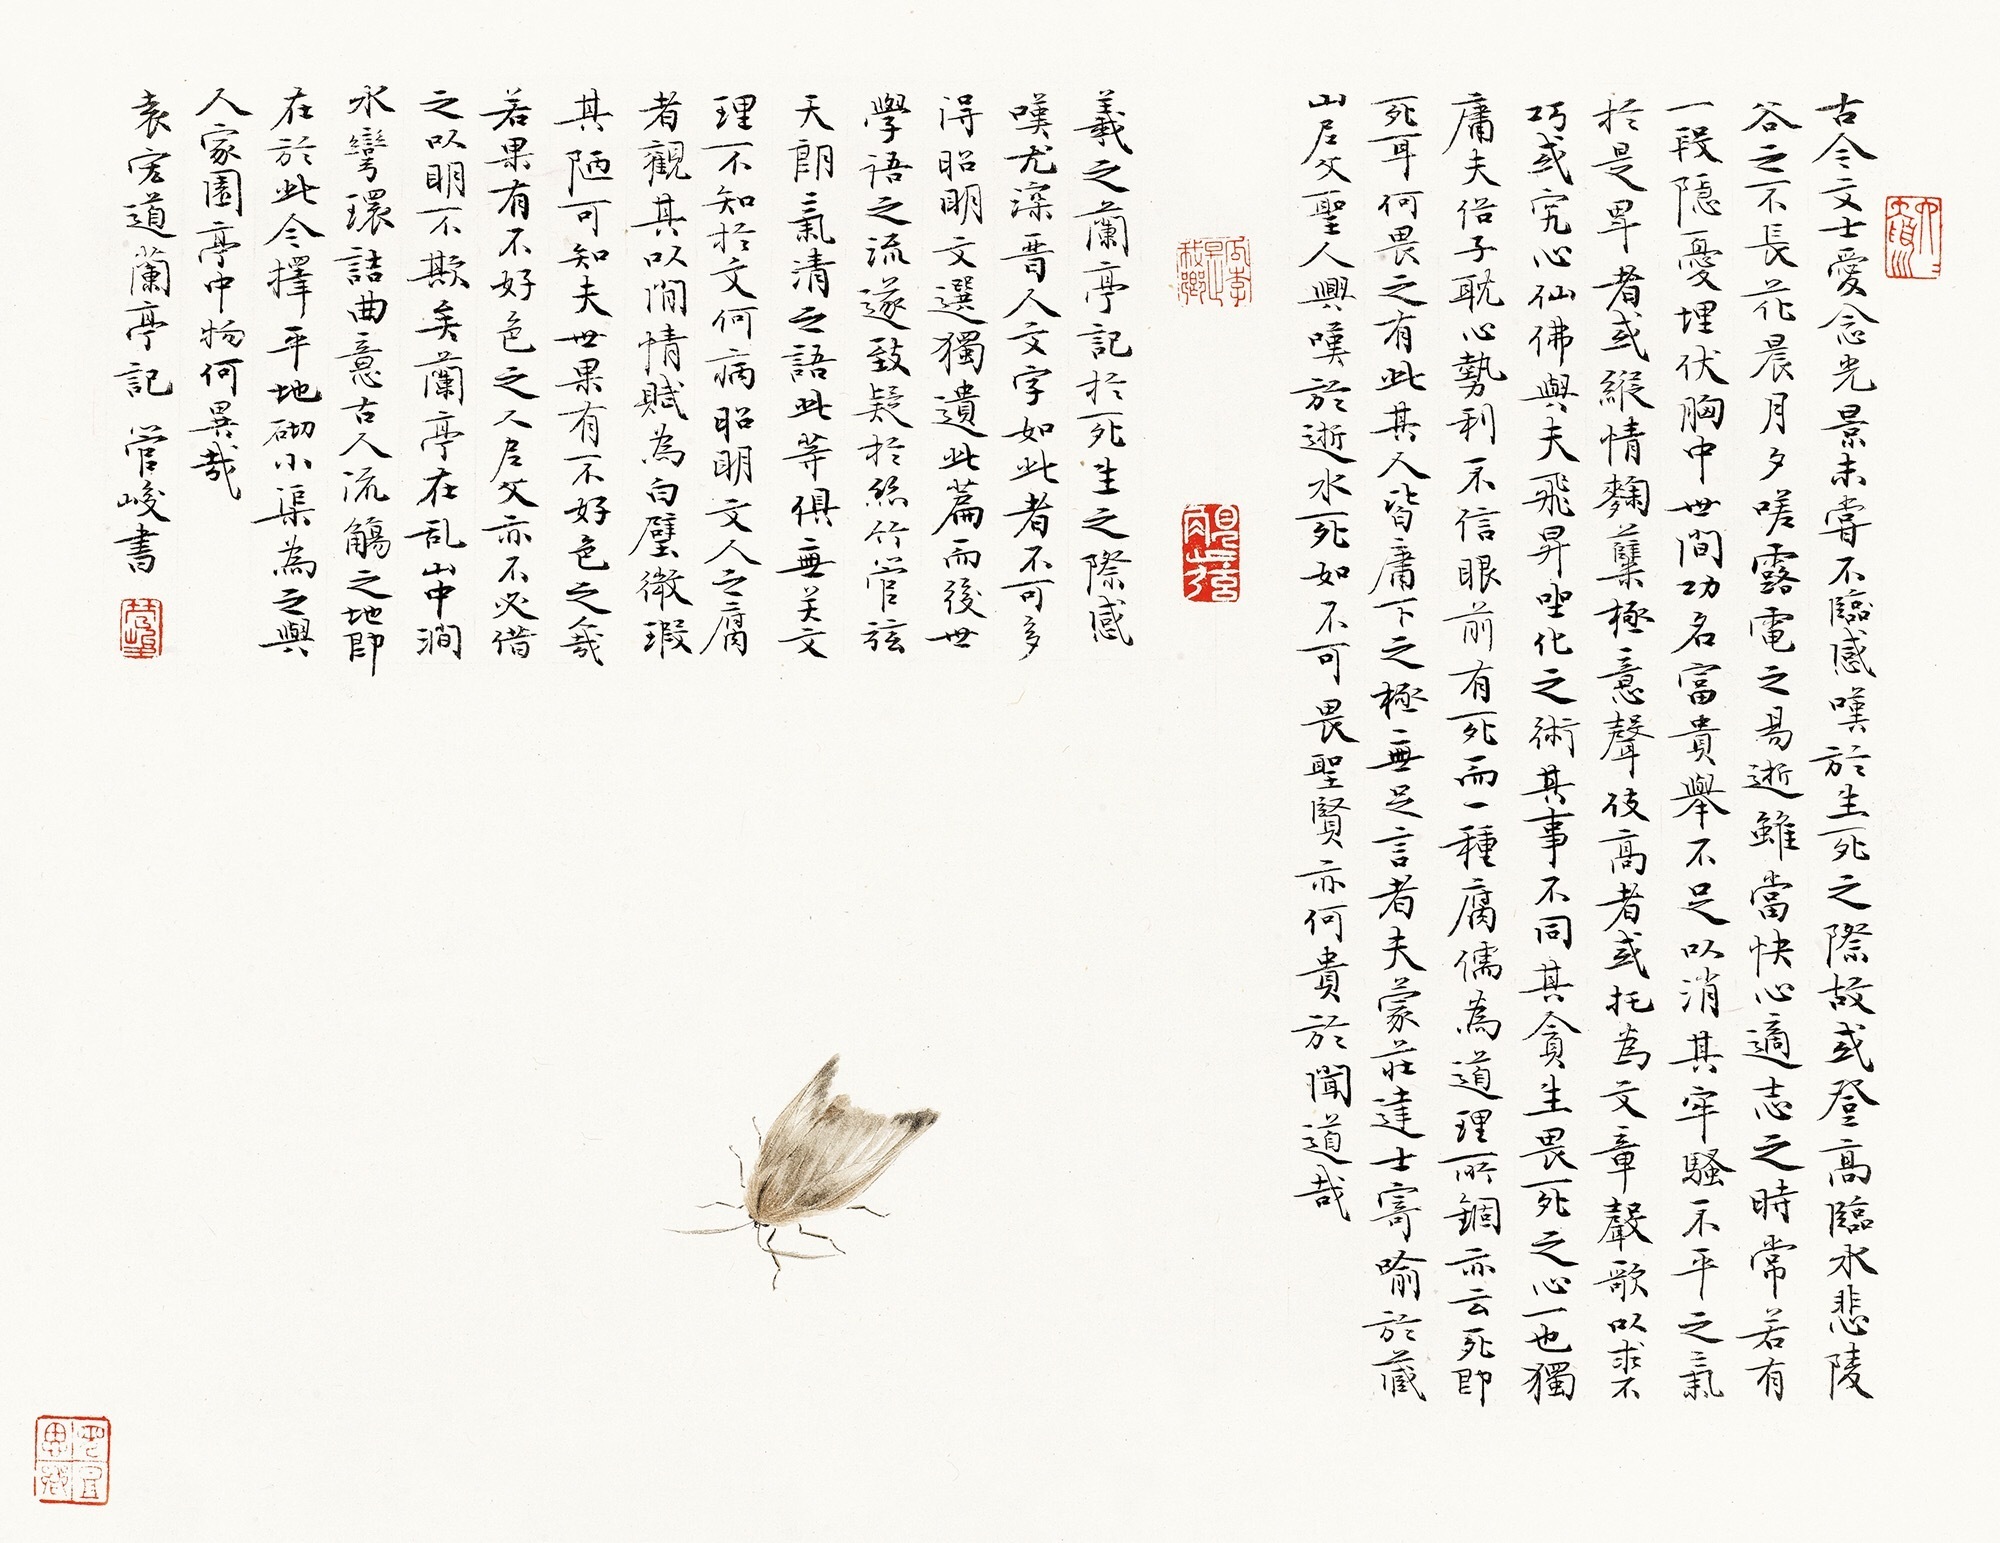 古今文士愛念光景未嘗不臨感嘆於生死之際故或登高臨水悲陵
谷之不長花晨月夕嗟露電之易逝雖當快心適志之時常若有
一段隱憂埋伏胸中世間功名富貴舉不足以消其牢騷不平之氣
於是卑者或縱情麴蘖極意聲伎高者或托為文章聲歌以求不
巧或究心仙佛與夫飛昇坐化之術其事不同其貪生畏死之心一也獨
庸夫俗子耽心勢利不信眼前有死而一種腐儒為道理所錮亦云死即
死耳何畏之有此其人皆庸下之極無足言者夫蒙莊達士寄喻於藏
山尼父聖人興嘆於逝水死如不可畏聖賢亦何貴於聞道哉
羲之蘭亭記於死生之際感
嘆尤深晉人文字如此者不可多
得昭明文選獨遺此篇而後世
學語之流遂致疑於絲竹管弦
天朗氣清之語此等俱無關文
理不知於文何病昭明文人之腐
者觀其以閒情賦為白璧微瑕
其陋可知夫世果有不好色之人哉
若果有不好色之人尼父亦不必借
之以明不欺矣蘭亭在亂山中澗
水彎環詰曲意古人流觴之地即
在於此今擇平地砌小渠為之與
人家園亭中物何異哉
袁宏道蘭亭記 管峻書